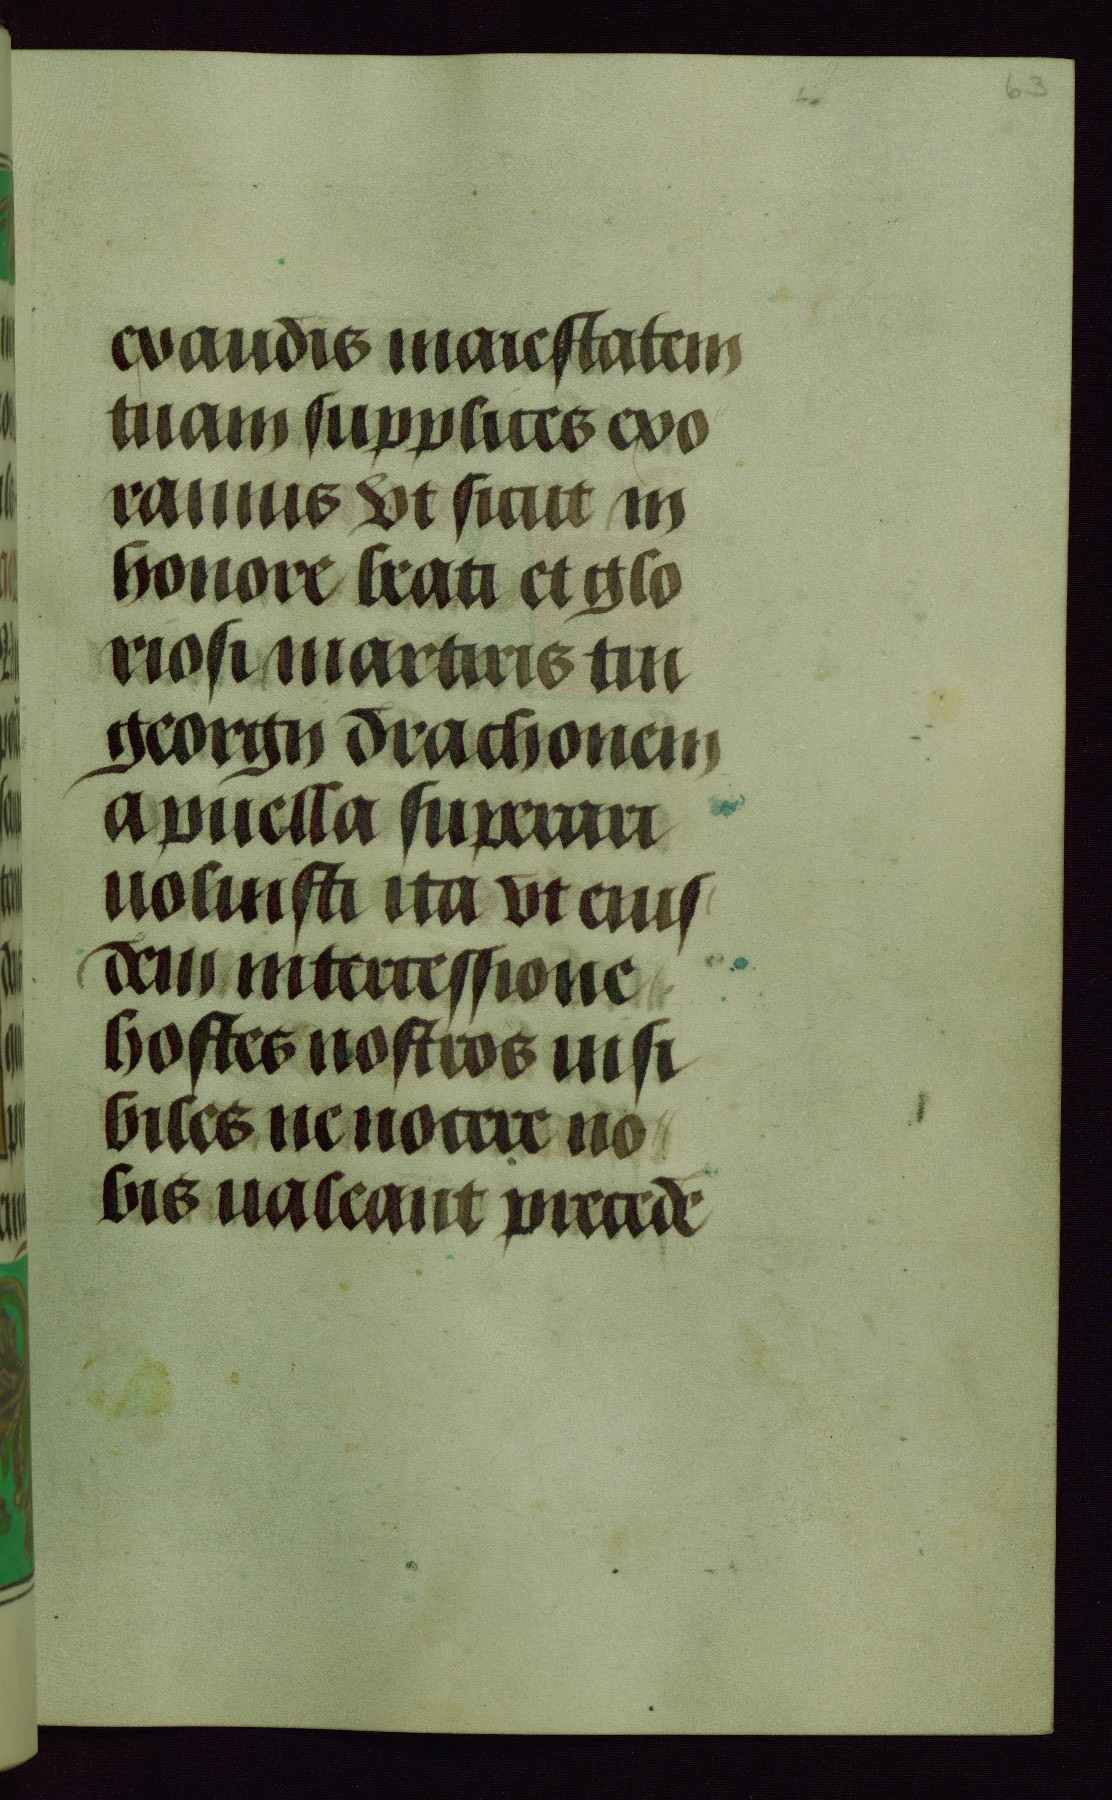 63
exaudis maiestatem
tuam supplices exo
ramus vt sicut in
honore beati et glo
riosi martiris tui
georgii drachonem
a puella superari
uoluisti ita vt eius
dem intercessione
hostes nostros uisi
biles ne nocere no
bis ualeant precede